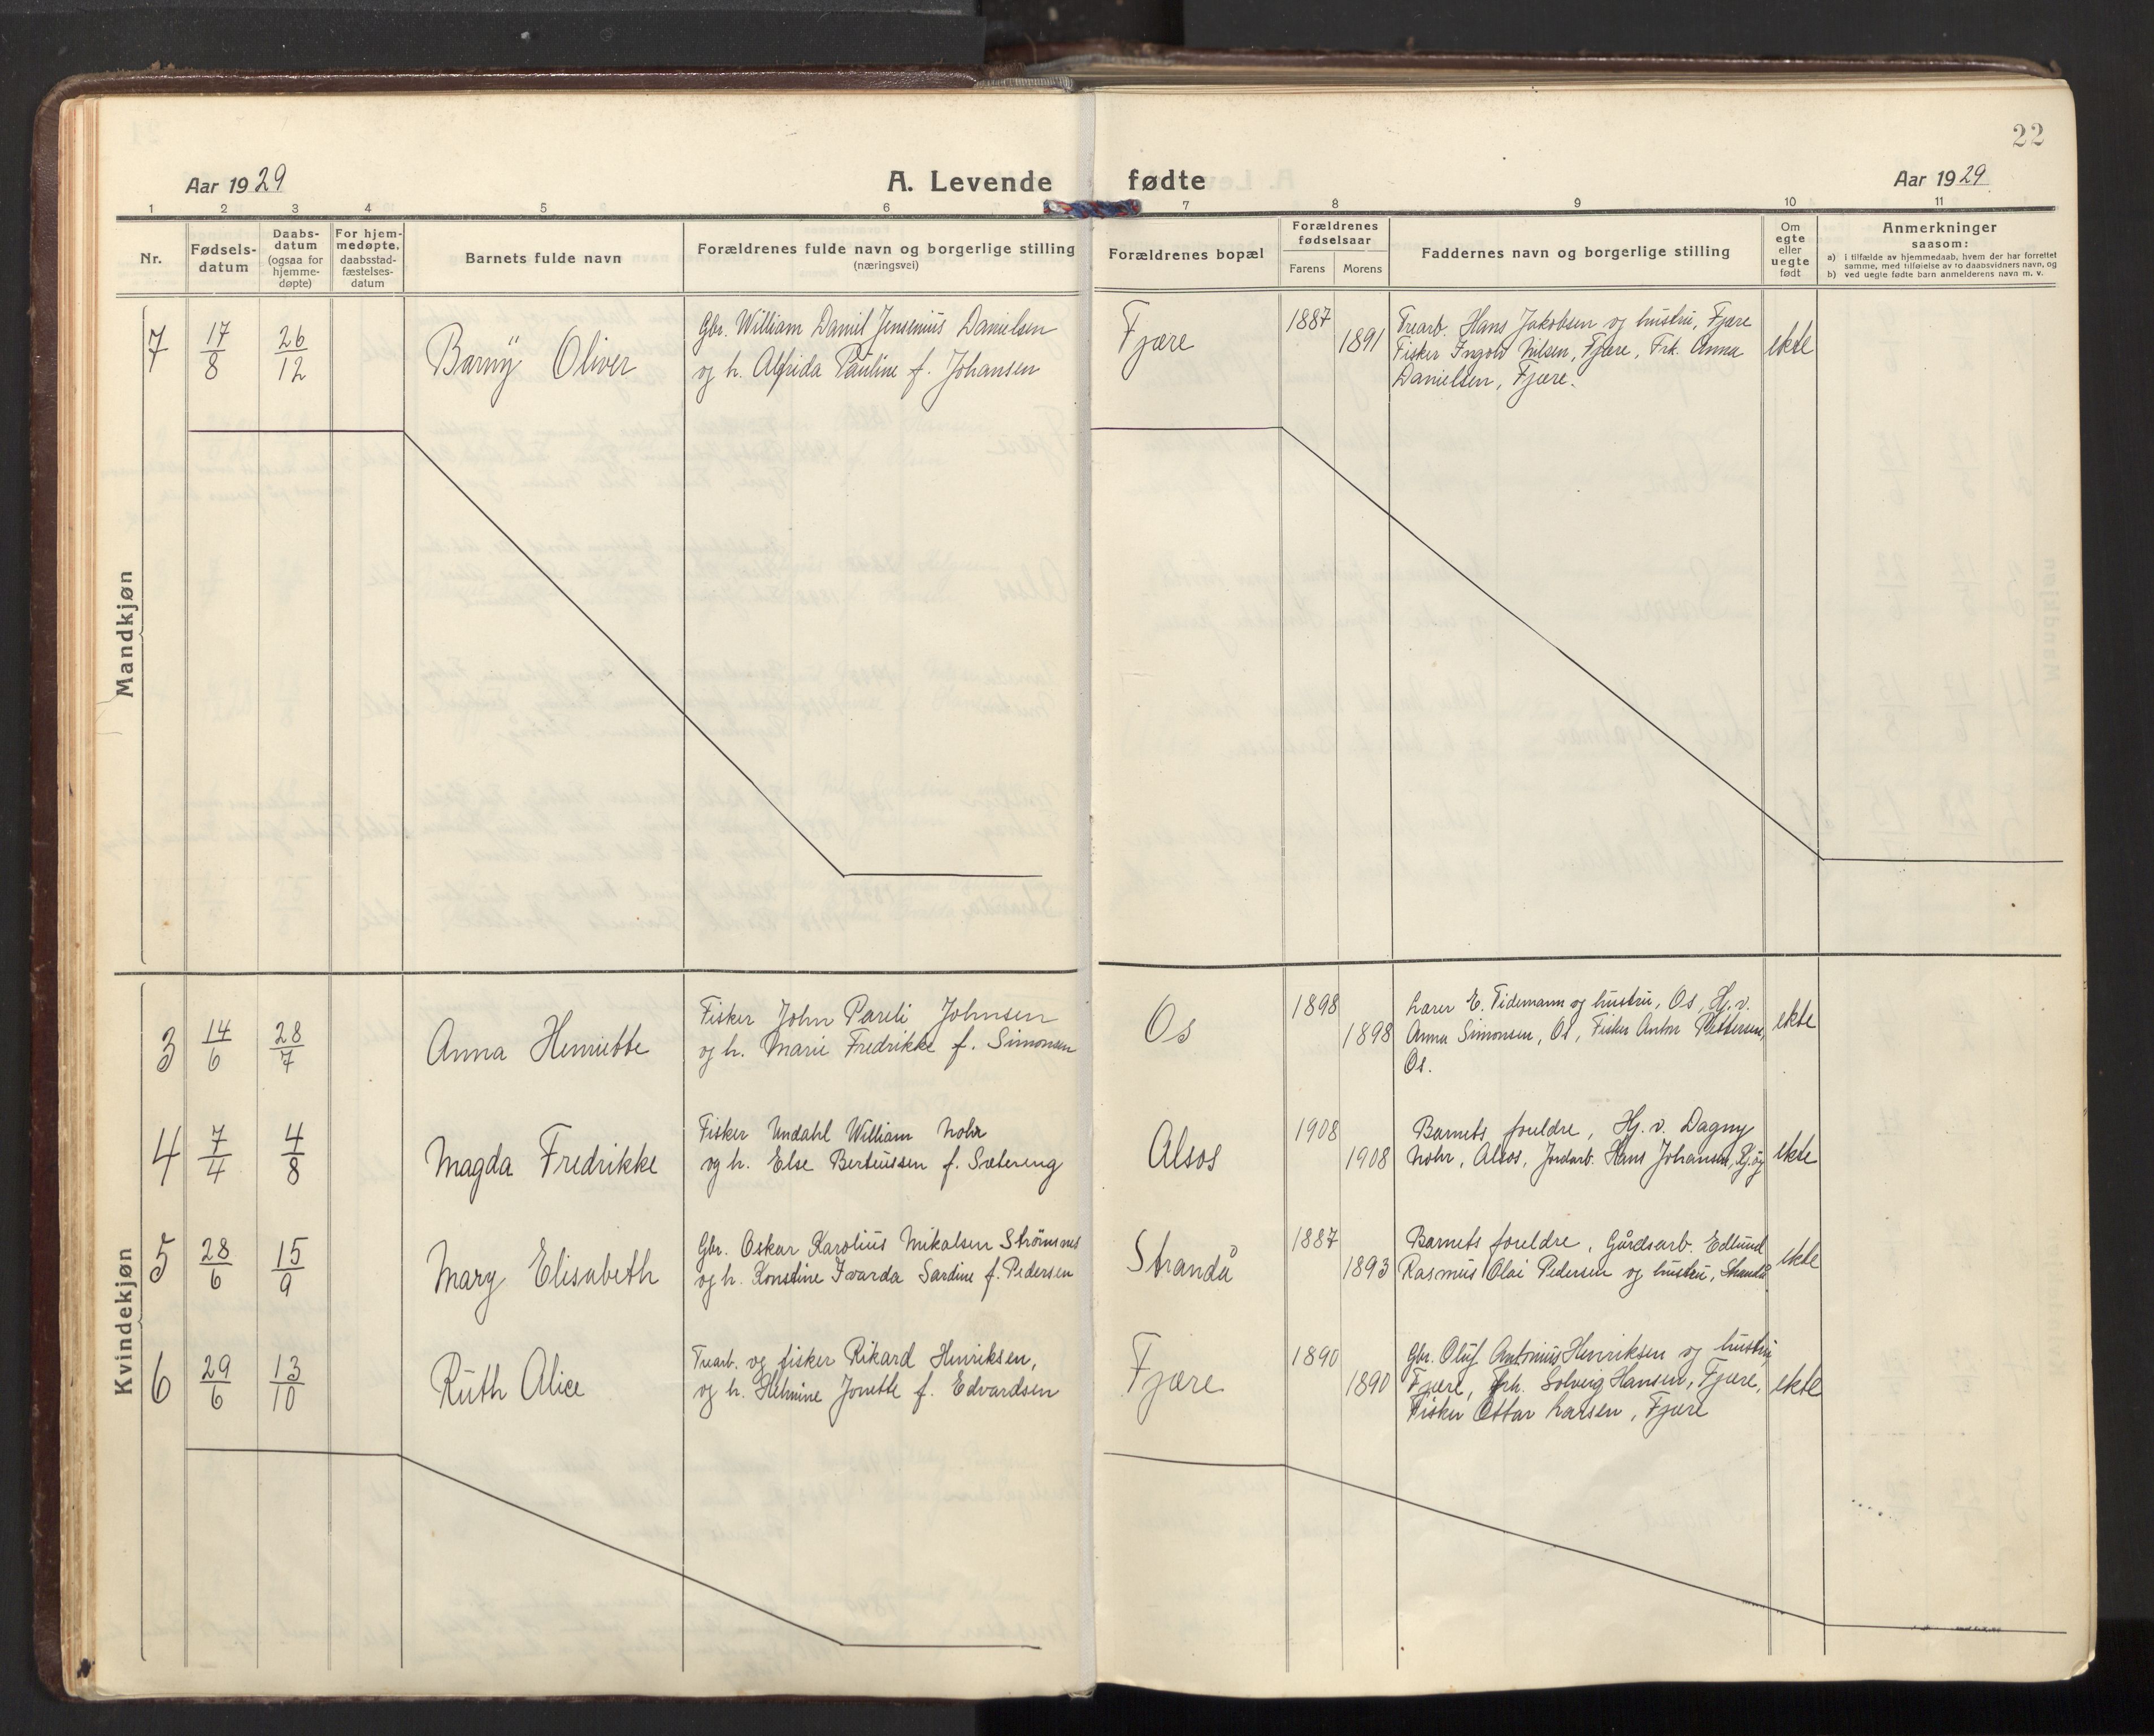 22
Aar 1929
A. Levende fødte
Aar 1929
1 2 3 4 5 6 7 8 9 10 11
Nr.
Fødsels-
datum
Daabs-
datum
(ogsaa for
hjemme-
døpte)
For hjem-
medøpte,
daabsstad-
fæstelses-
datum
Barnets fulde navn
Forældrenes fulde navn og borgerlige stilling
(næringsvei)
Forældrenes bopæl
Forældrenes
fødselsaar
Farens
Morens
Faddernes navn og borgerlige stilling
Om
egte
eller
uegte
født
Anmerkninger
saasom:
a) i tilfælde av hjemmedaab, hvem der har forrettet
samme, med tilføielse av to daabsvidners navn, og
b) ved uegte fødte barn anmelderens navn m. v.
Mandkjøn
7
17/8
26/12
Barny Oliver
Gbr. William Daniel Jensenius Danielsen
og h. Alfrida Pauline f. Johansen
Fjære
1887
1891
Trearb. Hans Jakobsen og hustru, Fjære
Fisker Ingolv Nilsen, Fjære, Frk. Anna
Danielsen, Fjære.
ekte
Kvindekjøn
3
14/6
28/7
Anna Henriette
Fisker John Pareli Johnsen
og h. Marie Fredrikke f. Simonsen
Os
1898
1898
Lærer E. Tidemann og hustru, Os, Hj. v.
Anna Simonsen, Os, Fisker Anton Pettersen,
Os.
ekte
4
7/4
4/8
Magda Fredrikke
Fisker Undahl William Nohr
og h. Else Berteussen f. Sætereng
Alsos
1908
1908
Barnets foreldre, Hj. v. Dagny
Nohr, Alsos, Jordarb. Hans Johansen,
ekte
5
28/6
15/9
Mary Elisabeth
Gbr. Oskar Karolius Mikalsen Strømsnes
og h. Konstine Ivarda Sardine f. Pedersen
Strandå
1887
1893
Barnets foreldre, Gårdsarb. Edlund
Rasmus Olai Pedersen og hustru, Strandå
ekte
6
29/6
13/10
Ruth Alice
Trearb. og fisker Rikard Henriksen,
og h. Helmine Jonette f. Edvardsen
Fjære
1890
1890
Gbr. Oluf Antonius Henriksen og hustru
Fjære, Frk. Solveig Hansen, Fjære,
Fisker Ottar Larsen, Fjære
ekte